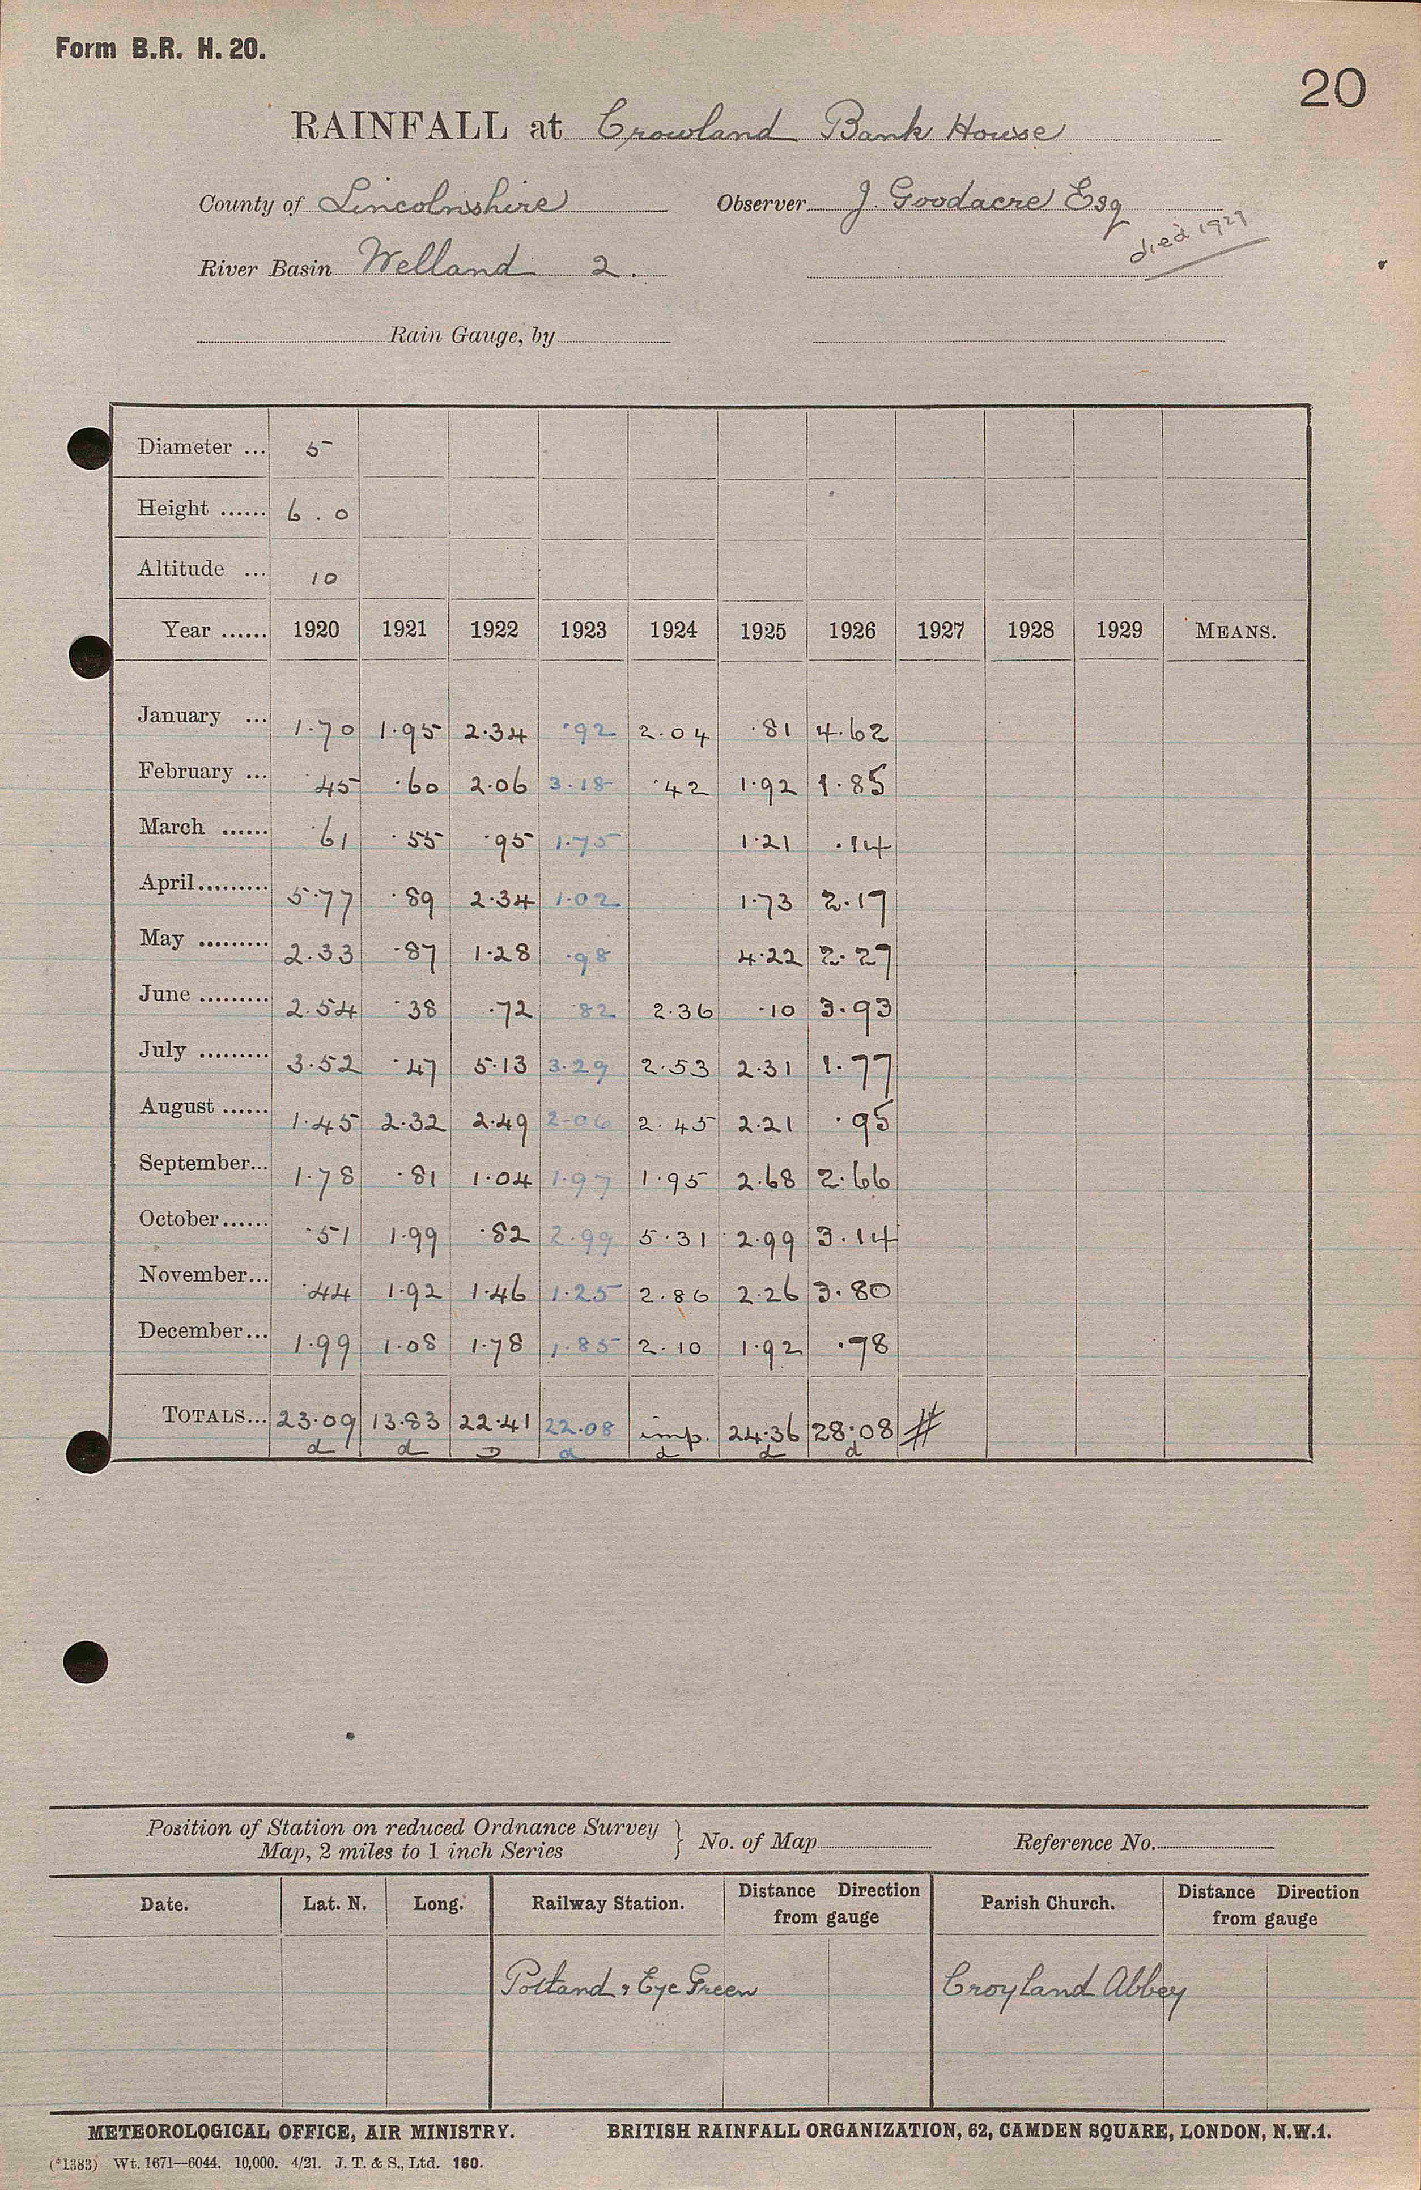 Form B.R. H. 20.
20
RAINFALL at Crowland Bank House
County of Lincolnshire Observer J. Goodacre Esq
died 1927
River Basin Welland 2.
Rain Gauge, by
Diameter ... 5
Height ...... 6.0
Altitude ... 10
Year ...... 1920 1921 1922 1923 1924 1925 1926 1927 1928 1929 MEANS.
January ... 1.70 1.95 2.34 .92 2.04 .81 4.62
February ... .45 .60 2.06 3.18 .42 1.92 1.85
March ...... .61 .55 .95 1.75 1.21 .14
April......... 5.77 .89 2.34 1.02 1.73 2.17
May ......... 2.33 .87 1.28 .98 4.22 2.27
June ......... 2.54 .38 .72 .82 2.36 .10 3.93
July ......... 3.52 .47 5.13 3.29 2.53 2.31 1.77
August ...... 1.45 2.32 2.49 2.06 2.45 2.21 .95
September... 1.78 .81 1.04 1.97 1.95 2.68 2.66
October...... .51 1.99 .82 2.99 5.31 2.99 3.14
November... .44 1.92 1.46 1.25 2.86 2.26 3.80
December... 1.99 1.08 1.78 1.85 2.10 1.92 .78
TOTALS... 23.09 13.83 22.41 22.08 imp. 24.36 28.08 #
d d D d d d d
Position of Station on reduced Ordnance Survey
Map, 2 miles to 1 inch Series } No. of Map Reference No.
Date. Lat. N. Long. Railway Station. Distance Direction from gauge Parish Church. Distance Direction from gauge
Postland & Eye Green Croyland Abbey
METEOROLOGICAL OFFICE, AIR MINISTRY. BRITISH RAINFALL ORGANIZATION, 62, CAMDEN SQUARE, LONDON, N.W.1.
(*1383) Wt. 1671—6044. 10,000. 4/21. J. T. & S., Ltd. 160.